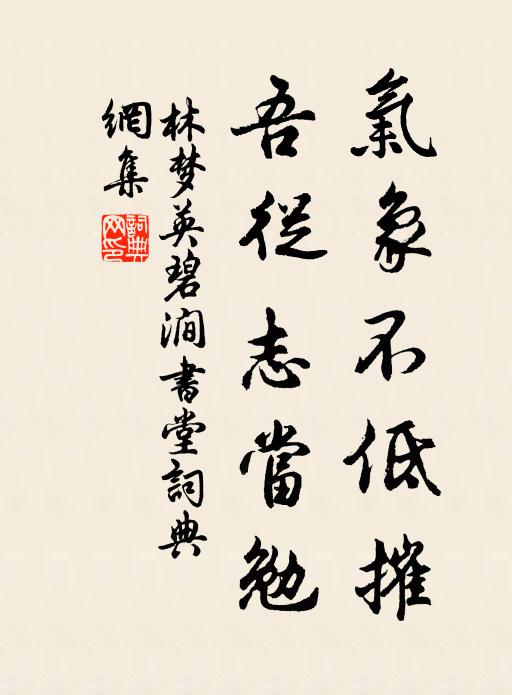 氣象不低摧
吾從志當勉
林梦英碧澗書堂詞典
網集
詞典
网印